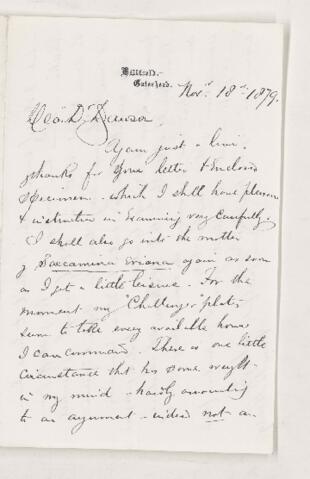 Hillfield.
Gateshead.
Novr. 18th 1879.
Dear Dr. Dawson
Again just a line.
thanks for your letter & enclosed
specimen which I shall have pleasure
& instruction in examining very carefully.
I shall also go into the matter
of Saccamina Eriana again as soon
as I get a little leisure. For the
moment my "Challenger" plates
seem to take every available hour
I can command. There is one little
circumstance that has some weight
in my mind - hardly amounting
to an argument - indeed not an